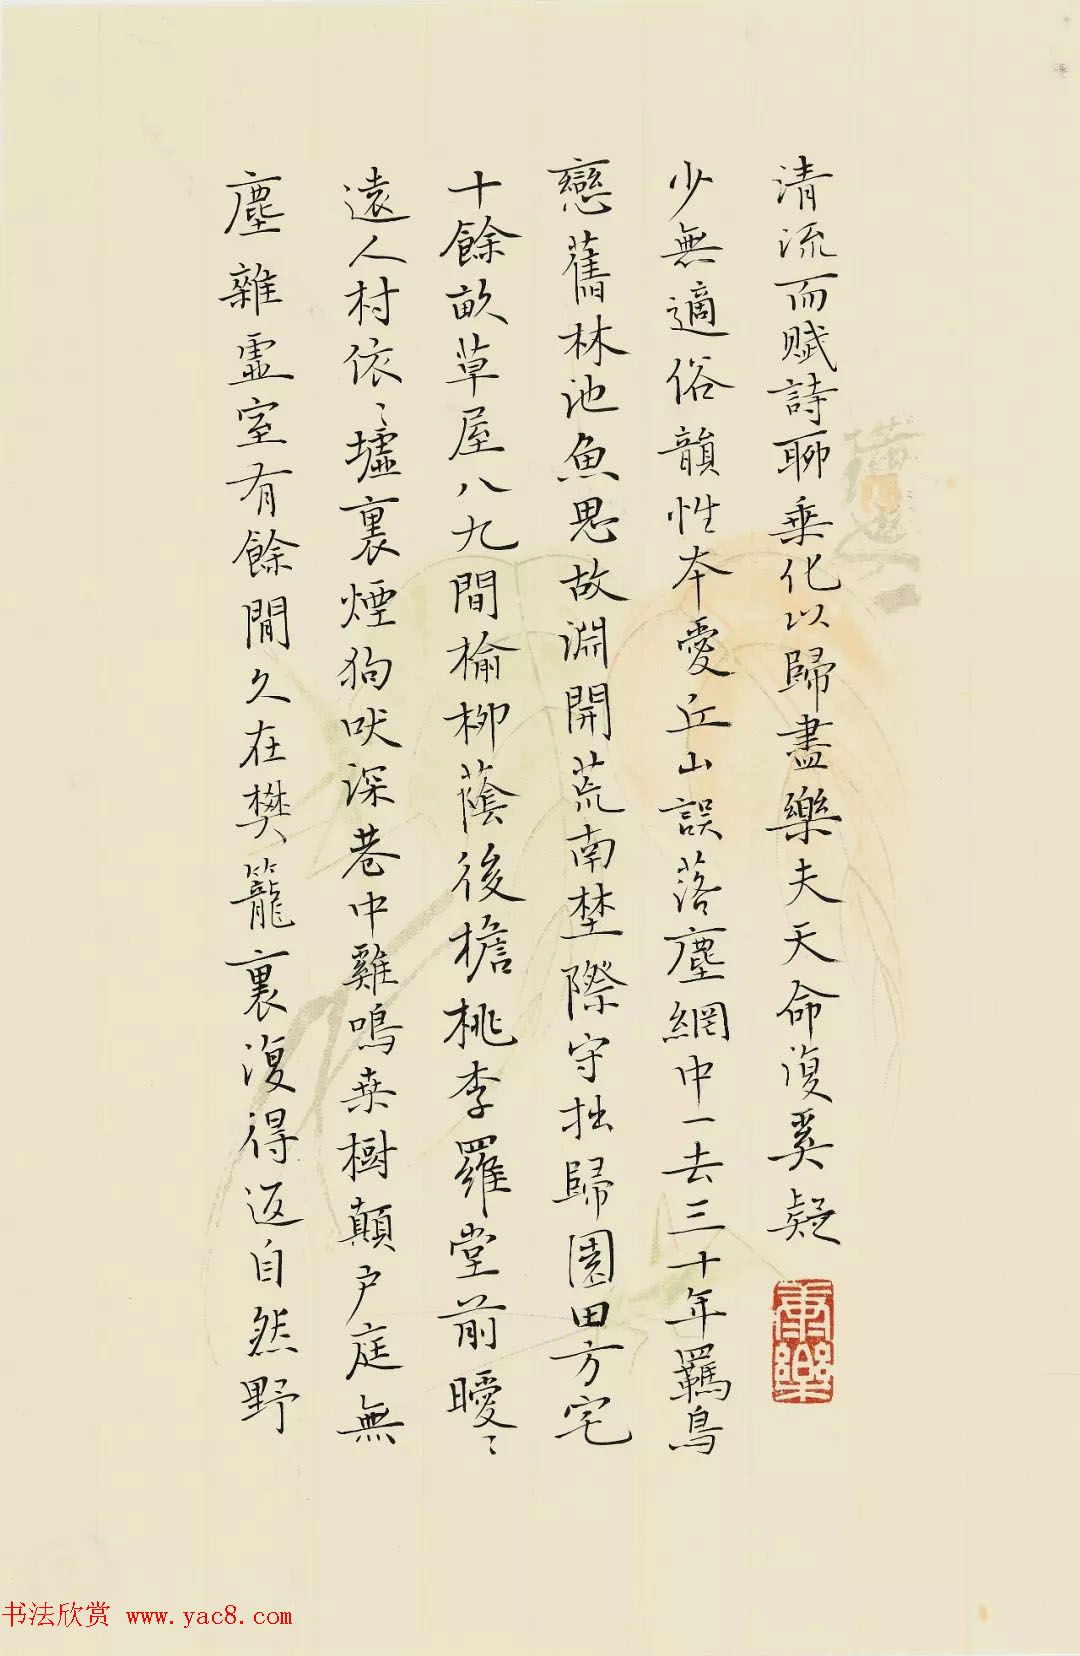 清流而賦詩聊乗化以歸盡樂夫天命復奚疑
少無適俗韻性本愛丘山誤落塵網中一去三十年羈鳥
戀舊林池魚思故淵開荒南埜際守拙歸園田方宅
十餘畝草屋八九間榆柳蔭後檐桃李羅堂前曖〻
遠人村依〻墟裏煙狗吠深巷中雞鳴桒樹顛戶庭無
塵雜虛室有餘閒久在樊籠裏復得返自然野
书法欣赏 www.yac8.com